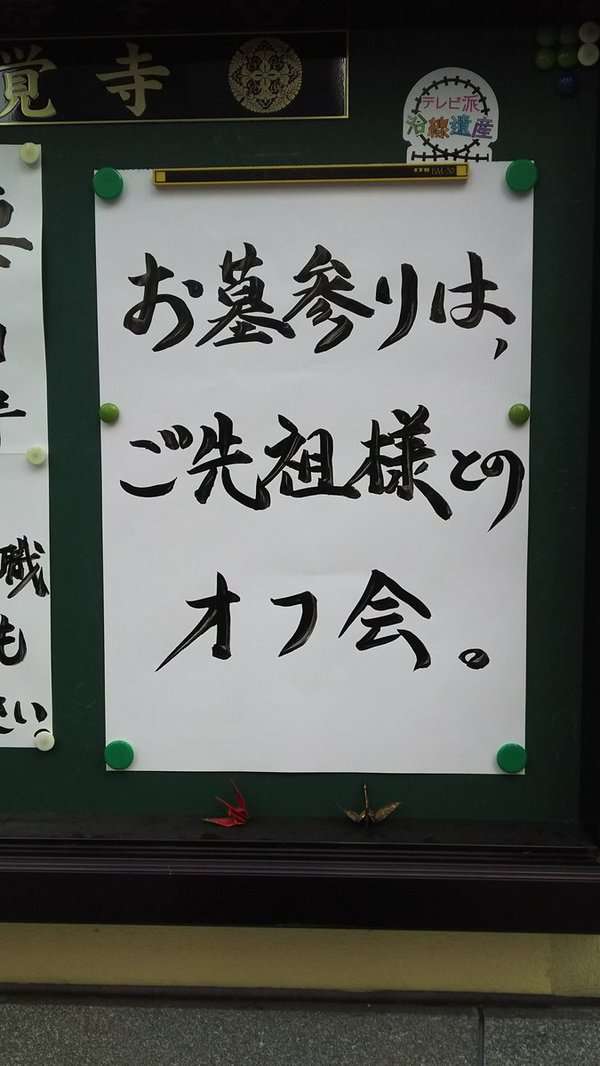 覚寺
テレビ派
沿線遺産
お墓参りは、
ご先祖様との
オフ会。
職
も
さい。